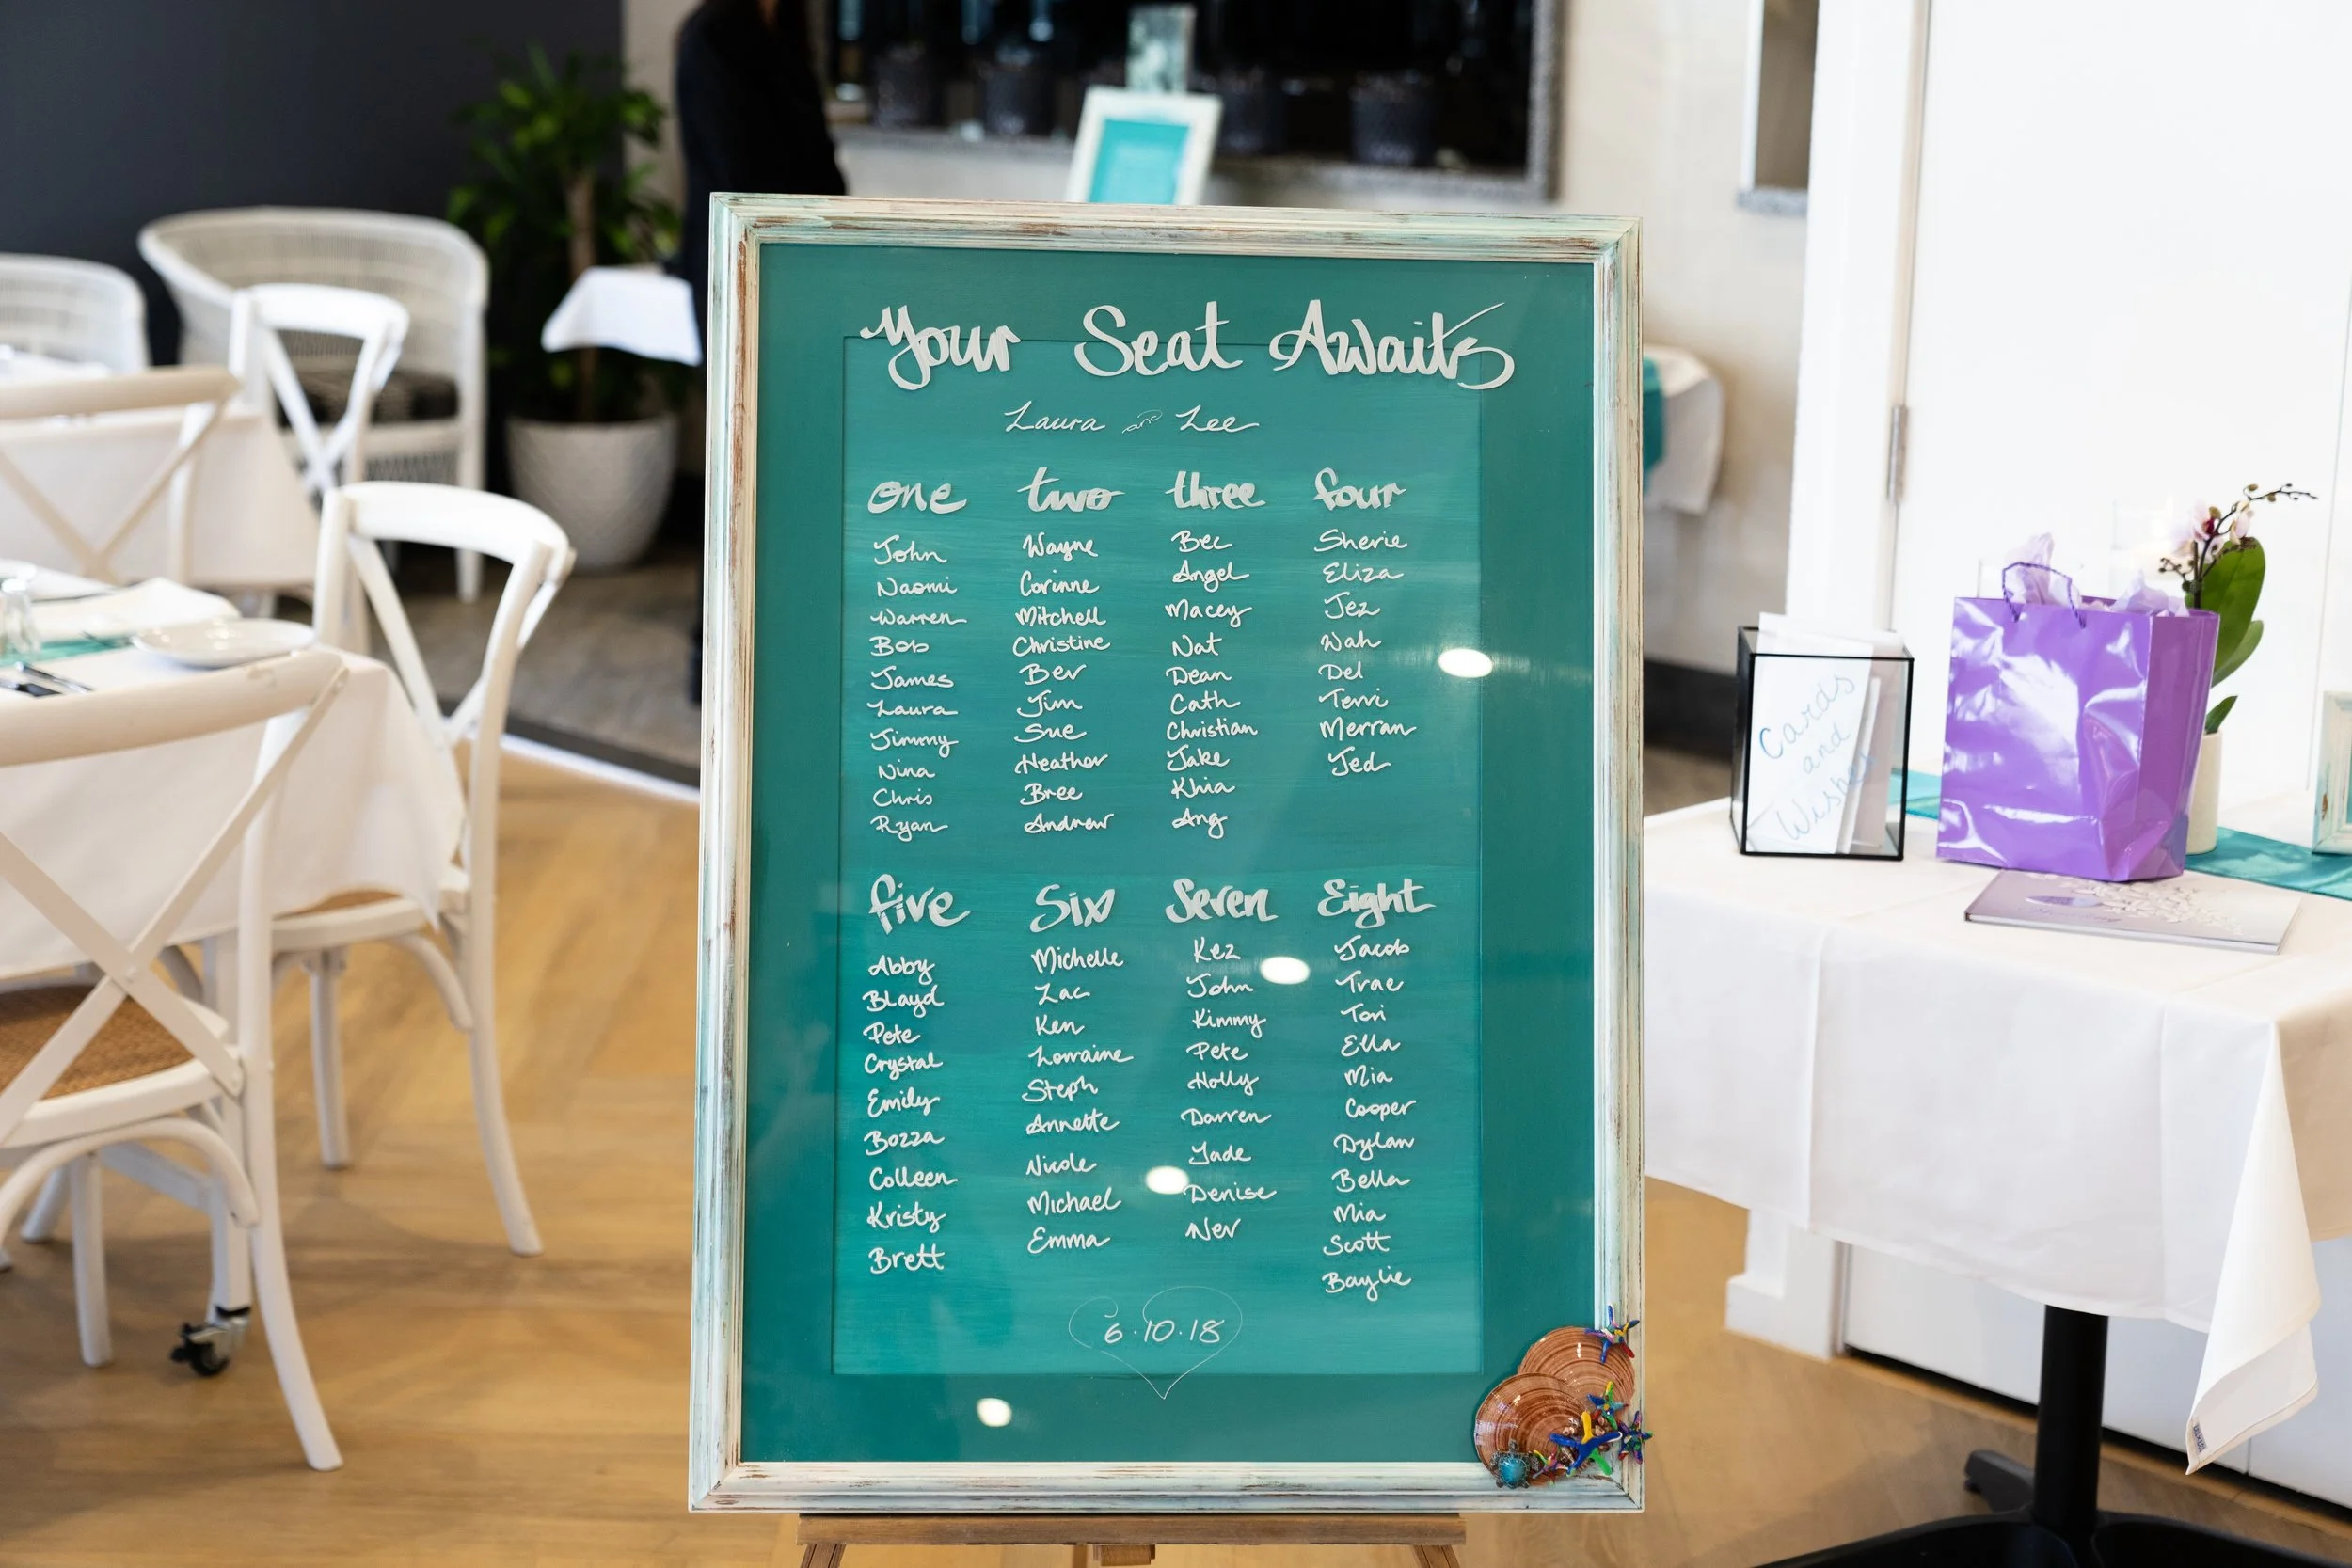 Your Seat Awaits
Laura and Lee
one
John
Naomi
Warren
Bob
James
Laura
Jimmy
Nina
Chris
Ryan
two
Wayne
Corinne
Mitchell
Christine
Bev
Jim
Sue
Heather
Bree
Andrew
three
Bec
Angel
Macey
Nat
Dean
Cath
Christian
Jake
Khia
Ang
four
Sherie
Eliza
Jez
Wah
Del
Terri
Merran
Jed
five
Abby
Blayd
Pete
Crystal
Emily
Bozza
Colleen
Kristy
Brett
Six
Michelle
Zac
Ken
Lorraine
Steph
Annette
Nicole
Michael
Emma
Seven
Kez
John
Kimmy
Pete
Holly
Darren
Jade
Denise
Nev
Eight
Jacob
Trae
Tori
Ella
Mia
Cooper
Dylan
Bella
Mia
Scott
Baylie
6.10.18
Cards
and
Wishes